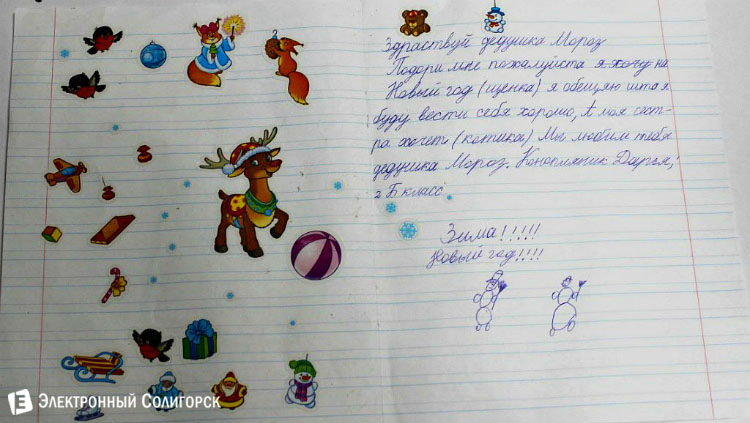 Здраствуй дедушка Мороз
Подори мне пожалуйста я хочу на
Новый год (щенка) я обещяю што я
буду вести себя хорошо, А моя сест-
ра хочет (котика) Мы любим тебя
дедушка Мороз. Конопляник Дарья,
2 Б класс
Зима!!!!!
Новый год!!!!
Электронный Солигорск